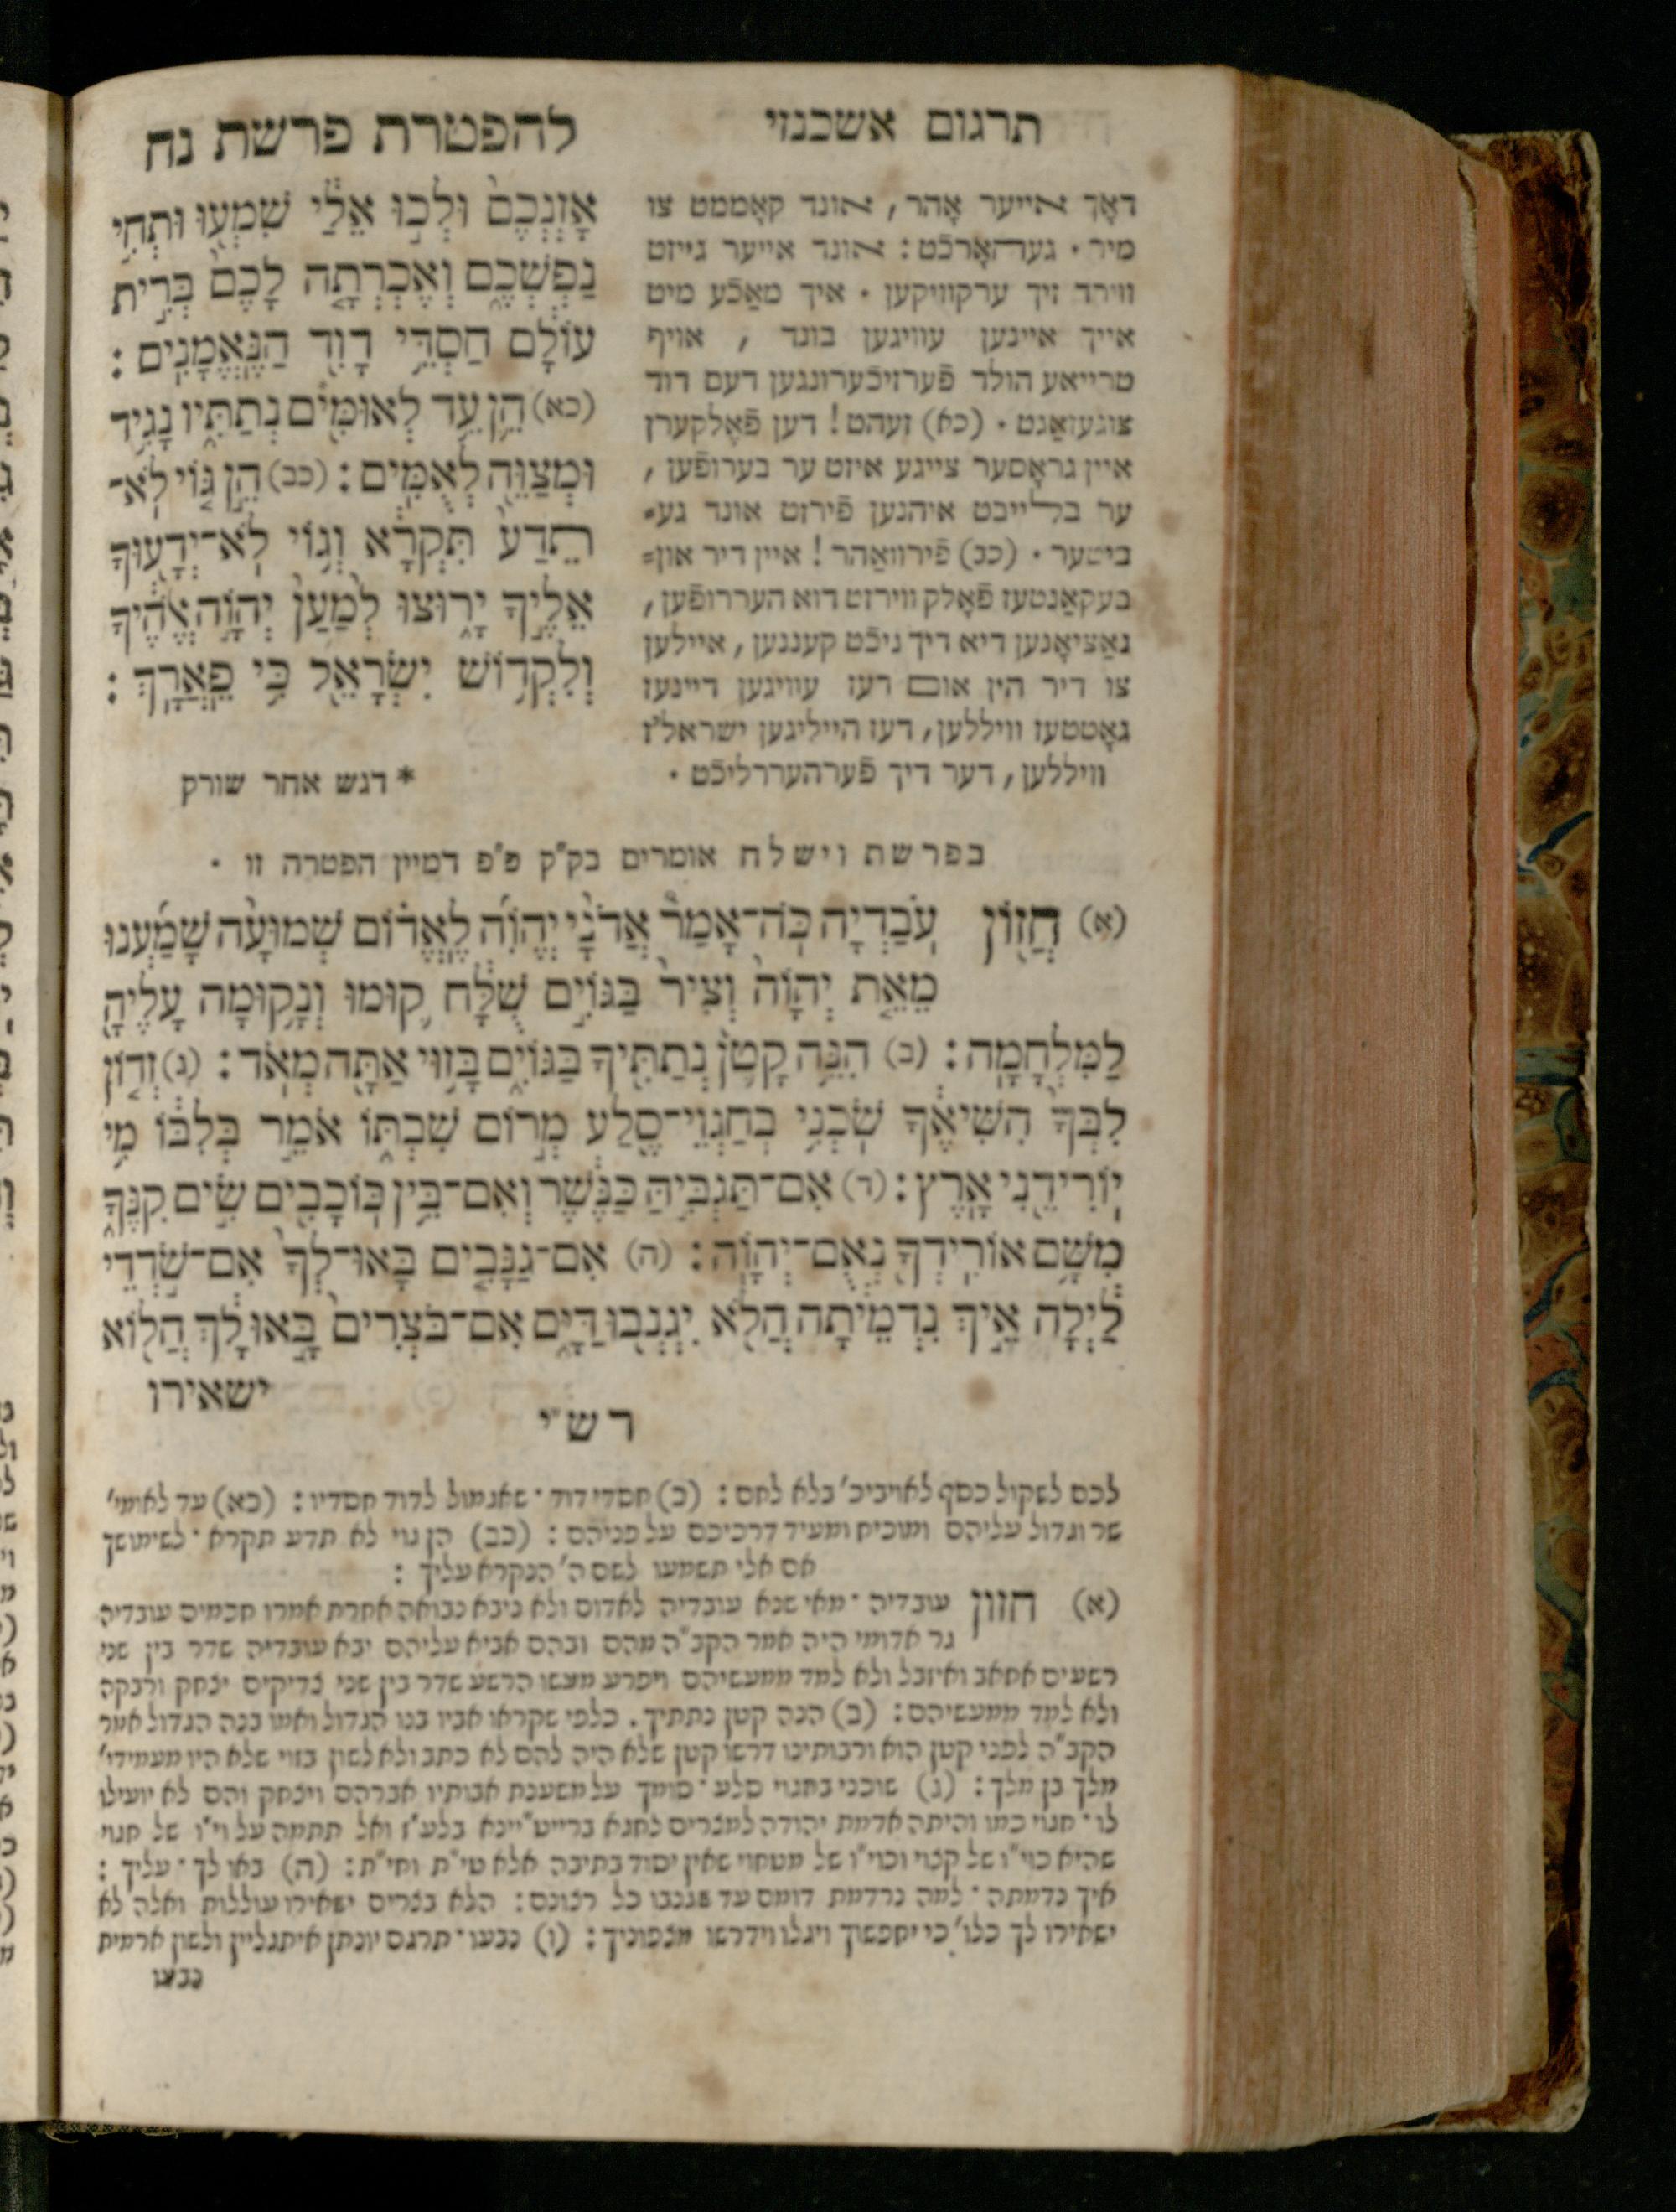 תרגום אשכנזי
להפטרת פרשת נח
אָזְנְכֶם֙ וּלְכ֣וּ אֵלַ֔י שִׁמְע֖וּ וּתְחִ֣י
נַפְשְׁכֶ֑ם וְאֶכְרְתָ֤ה לָכֶם֙ בְּרִ֣ית
עוֹלָ֔ם חַסְדֵ֥י דָוִ֖ד הַנֶּֽאֱמָנִֽים :
(כא) הֵ֥ן עֵ֛ד לְאוּמִּ֖ים נְתַתִּ֑יו נָגִ֥יד
וּמְצַוֵּ֖ה לְאֻמִּֽים : (כב) הֵ֣ן גּ֤וֹי לֹֽא־
תֵדַע֙ תִּקְרָ֔א וְג֥וֹי לֹֽא־יְדָע֖וּךָ
אֵלֶ֣יךָ יָר֑וּצוּ לְמַ֙עַן֙ יְהוָֹ֣ה אֱלֹהֶ֔יךָ
וְלִקְד֥וֹשׁ יִשְׂרָאֵ֖ל כִּ֥י פֵֽאֲרָֽךְ :
* דגש אחר שורק
דאָך אייער אָהר, אונד קאָממט צו
מיר · געהאָרכֿט : אונד אייער גייזט
ווירד זיך ערקוויקען · איך מאַכֿע מיט
אייך איינען עוויגען בונד , אויף
טרייאע הולד פֿערזיכֿערונגען דעם דוד
צוגעזאַגט · (כא) זעהט ! דען פֿאָלקערן
איין גראָסער צייגע איזט ער בערופֿען ,
ער בלייבט איהנען פֿירזט אונד גע=
ביטער · (כב) פֿירוואַהר ! איין דיר און=
בעקאַנטעז פֿאָלק ווירזט דוא העררופֿען ,
נאַציאָנען דיא דיך ניכֿט קעננען , איילען
צו דיר הין אום דעז עוויגען דיינעז
גאָטטעז וויללען, דעז הייליגען ישראל'ז
וויללען, דער דיך פֿערהעררליכֿט ·
בפרשת וישלח אומרים בק"ק פ"פ דמיין הפטרה זו ·
(א) חֲז֖וֹן עֹֽבַדְיָ֑ה כֹּֽה־אָמַר֩ אֲדֹנָ֨י יְהֶוִֹ֜ה לֶֽאֱד֗וֹם שְׁמוּעָ֨ה שָׁמַ֜עְנוּ
מֵאֵ֤ת יְהוָֹה֙ וְצִיר֙ בַּגּוֹיִ֣ם שֻׁלָּ֔ח ק֛וּמוּ וְנָק֥וּמָה עָלֶ֖יהָ
לַמִּלְחָמָֽה : (ב) הִנֵּ֥ה קָטֹ֛ן נְתַתִּ֖יךָ בַּגּוֹיִ֑ם בָּז֥וּי אַתָּ֖ה מְאֹֽד : (ג) זְד֤וֹן
לִבְּךָ֙ הִשִּׁיאֶ֔ךָ שֹֽׁכְנִ֥י בְחַגְוֵי־סֶ֖לַע מְר֣וֹם שִׁבְתּ֑וֹ אֹמֵ֣ר בְּלִבּ֔וֹ מִ֥י
יֽוֹרִידֵ֖נִי אָֽרֶץ : (ד) אִם־תַּגְבִּ֣יהַּ כַּנֶּ֔שֶׁר וְאִם־בֵּ֥ין כּֽוֹכָבִ֖ים שִׂ֣ים קִנֶּ֑ךָ
מִשָּׁ֥ם אֽוֹרִֽידְךָ֖ נְאֻם־יְהוָֹֽה : (ה) אִם־גַּנָּבִ֤ים בָּאוּ־לְךָ֙ אִם־שֹׁ֣דְדֵי
לַ֔יְלָה אֵ֣יךְ נִדְמֵ֔יתָה הֲל֥וֹא יִגְנְב֖וּ דַּיָּ֑ם אִם־בֹּֽצְרִים֙ בָּ֣אוּ לָ֔ךְ הֲל֖וֹא
ישאירו
רש"י
לכם לשקול כסף לאויביכ' בלא לחם : (כ) חסדי דוד · שאגמול לדוד חסדיו : (כא) עד לאומי'
שר וגדול עליהם ומוכיח ומעיד דרכיכם על פניהם : (כב) הן גוי לא תדע תקרא · לשימושך
אם אלי תשמעו לשם ה' הנקרא עליך :
(א) חזון עובדיה · מאי שנא עובדיה לאדום ולא ניבא נבואה אחרת אמרו חכמים עובדיה
גר אדומי היה אמר הקב"ה מהם ובהם אביא עליהם יבא עובדיה שדר בין שני
רשעים אחאב ואיזבל ולא למד ממעשיהם ויפרע מעשו הרשע שדר בין שני צדיקים יצחק ורבקה
ולא למד ממעשיהם : (ב) הנה קטן נתתיך . כלפי שקראו אביו בנו הגדול ואמו בנה הגדול אמר
הקב"ה לפני קטן הוא ורבותינו דרשו קטן שלא היה להם לא כתב ולא לשון בזוי שלא היו מעמידי'
מלך בן מלך : (ג) שוכני בחגוי סלע · סומך על משענת אבותיו אברהם ויצחק והם לא יועילו
לו · חגוי כמו והיתה אדמת יהודה למצרים לחגא ברייט"יינא בלע"ז ואל תתמה על וי"ו של חגוי
שהיא כוי"ו של קצוי וכוי"ו של מטחוי שאין יסוד בתיבה אלא טי"ת וחי"ת : (ה) באו לך · עליך :
איך נדמתה · למה נרדמת דומם עד שגנבו כל רצונם : הלא בצרים ישאירו עוללות ואלה לא
ישאירו לך כלו' כי יחפשוך ויגלו וידרשו מצפוניך : (ו) נבעו · תרגם יונתן איתגליין ולשון ארמית
נבעו